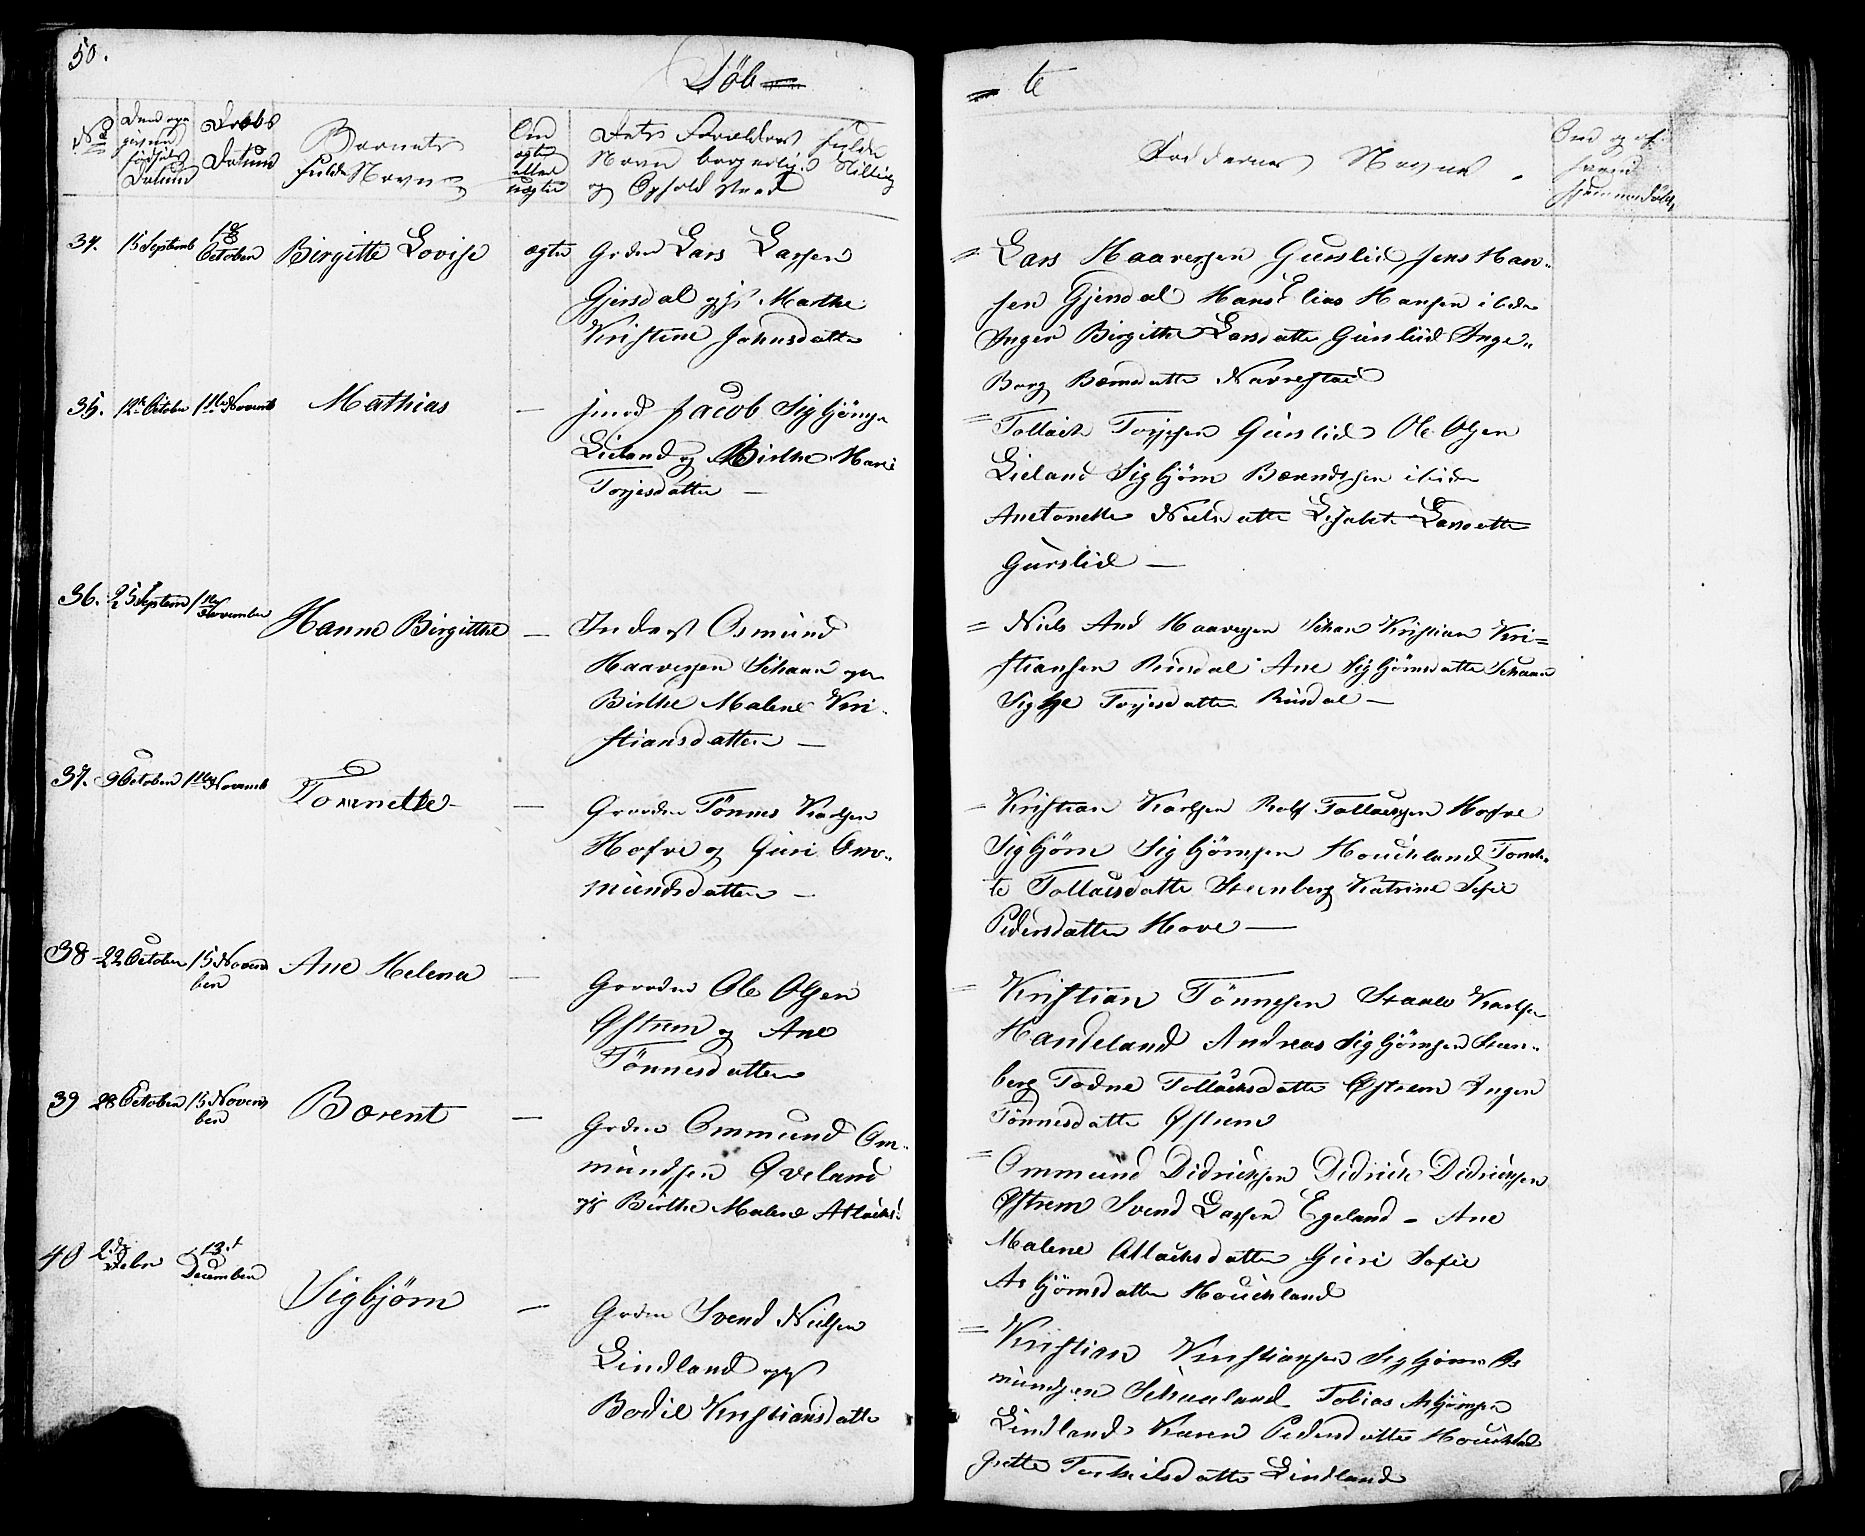 50.
Døb=
= te
No
Den opgivne fødsels Datum
Daabs Datum
Barnets fulde Navn
Om ægte eller uægte
Dets Forældres fulde
Navn borgerlige Stilling
og Opholdsted
Faddernes Navne.
34. 15 September 18 October Birgitte Lovise ægte
Grdm Lars Larsen
Gjersdal og Marthe
Kristine Johnsdatter
= Lars Haaversen Gurslid Jens Han-
sen Gjersdal Hans Elias Hansen ibidm
Inger Birgithe Larsdatter Gurslid Inge-
Borg Berntsdatter Navrestad
35. 12te October 1ste Novemb Mathias —
Jacob Sigbjörnsen
Lieland og Birthe Marie
Torjesdatter —
= Tollack Torjesen Gurslid Ole Olsen
Lieland Sigbjörn Bærentsen ibidm
Anetonette Nielsdatter Lisabet Larsdatter
Gurslid —
36. 25 Septemb 1ste November Hanne Birgitthe —
Inderst Osmund
Haaversen Schaan og
Birthe Malene Kri-
stiansdatter —
= Niels And Haaversen Schan Kristian Kri=
stiansen Rusdal Ane Sigbjörnsdatter Schaan
Torjesdatter Rusdal —
37. 9 October 1ste Novemb Tonnette —
Gaardm Tönnes Karlsen
Hofve og Guri Om-
mundsdatter —
- Kristian Karlsen Rolf Tollacksen Hofve
Sigbjörn Sigbjörnsen Houckland Tonet-
te Tollacksdatter Steenberg Katrine Sofie
Pedersdatter Hove —
38 22 October 15 Novem
ber Ane Helena —
Gaardm Ole Olsen
Østrem og Ane
Tönnesdatter
- Kristian Tönnesen Staale Karlsen
Handeland Andreas Sigbjörnsen Steen-
berg Todne Tollacksdatter Østrem Inger
Tönnesdatter Østrem
39 28 October 15 Novem
ber Bærent —
Grdm Ommund Om-
mundsen Øveland
og Birthe Malene Atlacks
= Ommund Didricksen Didrick Didricksen
Østrem Svend Larsen Egeland - Ane
Malene Atlacksdatter Guri Sofie
Asbjörnsdatter Houckland
40 2 Debr 13 December Sigbjørn —
Grdm Svend Nielsen
Lindland og
Bodil Kristiansdatter
= Kristian Kristiansen Sigbjörn As
mundsen Schaaland Tobias Asbjörnsen
Lindland Karen Pedersdatter Houckland
Grette Torkielsdatter Lindland